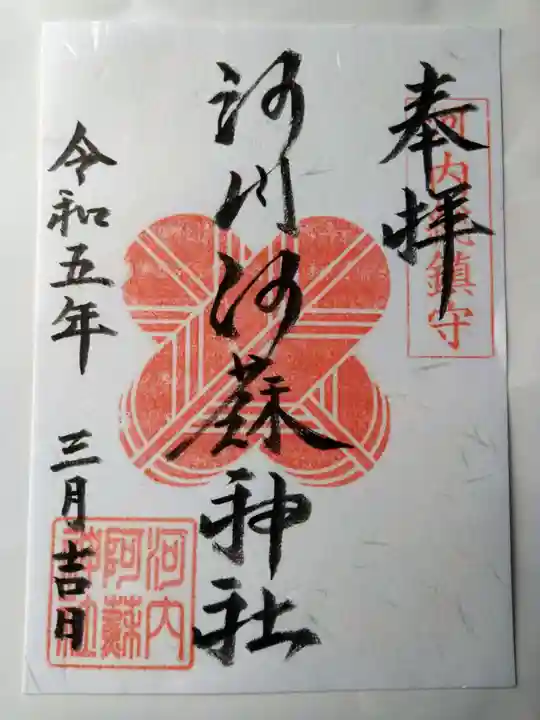 奉拝
河内鎮守
河内阿蘇神社
令和五年 三月吉日
河内
阿蘇
神社